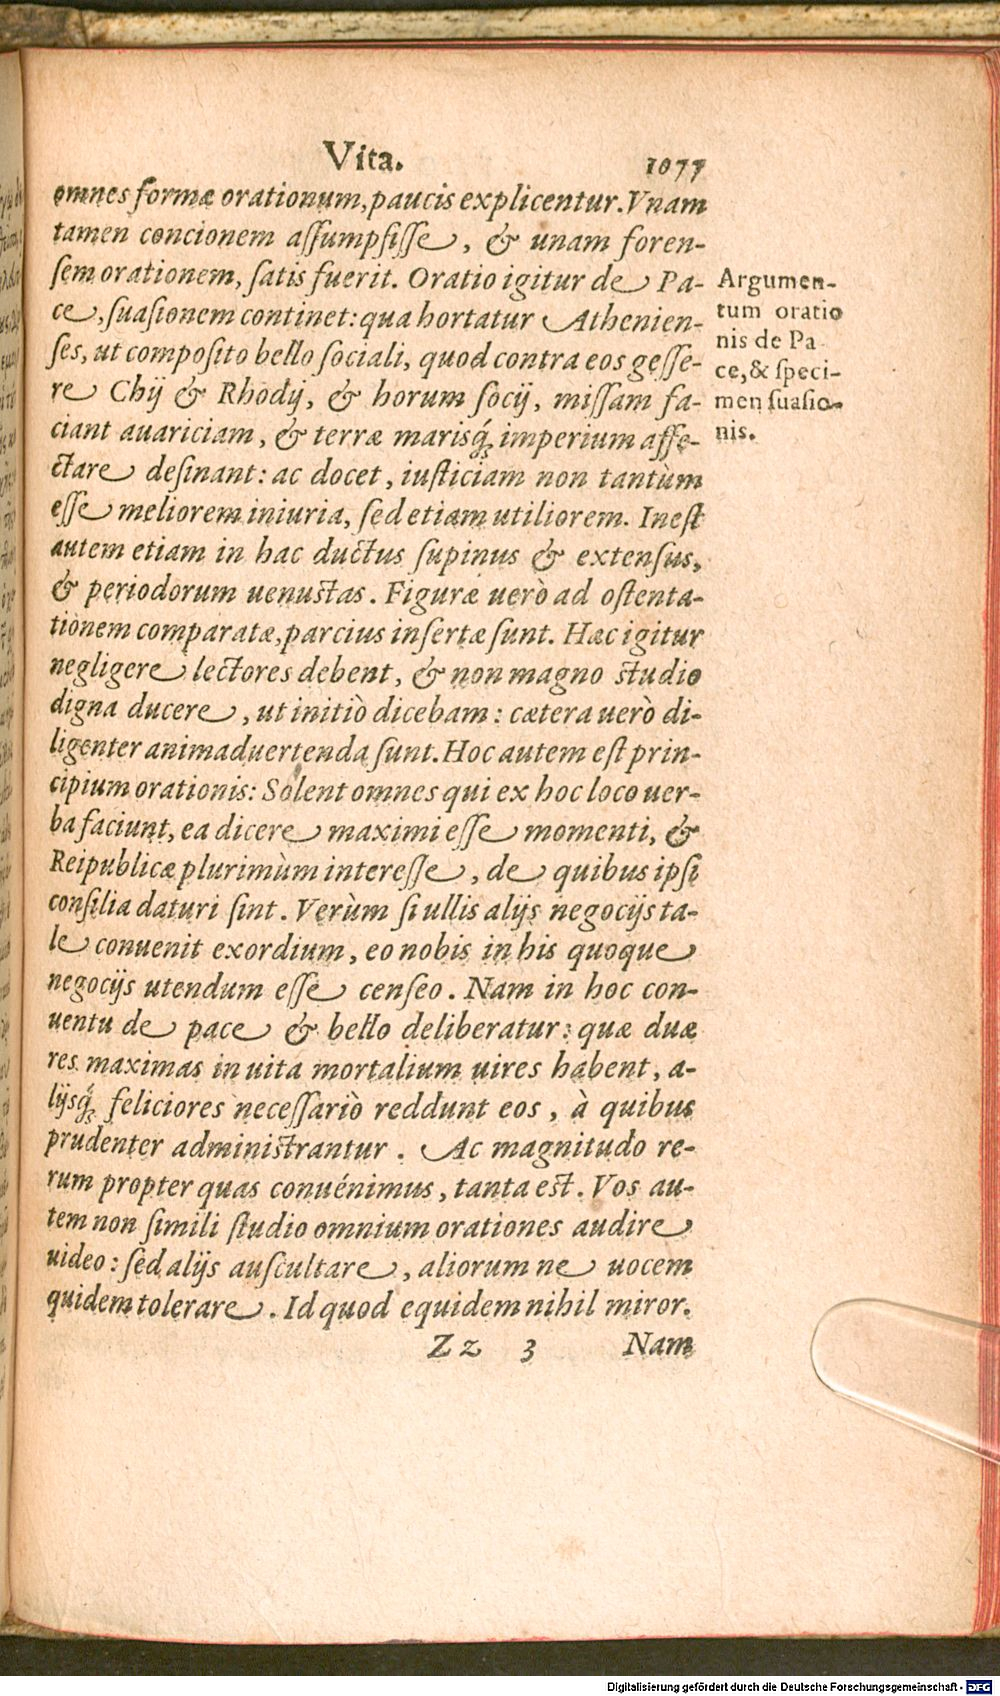 Vita. 1077
omnes formæ orationum, paucis explicentur. Vnam
tamen concionem aſſumpſiſſe, & unam foren-
ſem orationem, ſatis fuerit. Oratio igitur de Pa-
ce, ſuaſionem continet: qua hortatur Athenien-
ſes, ut compoſito bello ſociali, quod contra eos geſſe-
re Chij & Rhodij, & horum ſocij, miſſam fa-
ciant auariciam, & terræ marisq́; imperium affe-
ctare deſinant: ac docet, iuſticiam non tantùm
eſſe meliorem iniuria, ſed etiam utiliorem. Ineſt
autem etiam in hac ductus ſupinus & extenſus,
& periodorum uenustas. Figuræ uerò ad oſtenta-
tionem comparatæ, parcius inſertæ ſunt. Hæc igitur
negligere lectores debent, & non magno studio
digna ducere, ut initiò dicebam: cætera uerò di-
ligenter animaduertenda ſunt. Hoc autem eſt prin-
cipium orationis: Solent omnes qui ex hoc loco uer-
ba faciunt, ea dicere maximi eſſe momenti, &
Reipublicæ plurimùm intereſſe, de quibus ipſi
conſilia daturi ſint. Verùm ſi ullis alijs negocijs ta-
le conuenit exordium, eo nobis in his quoque
negocijs utendum eſſe cenſeo. Nam in hoc con-
uentu de pace & bello deliberatur: quæ duæ
res maximas in uita mortalium uires habent, a-
lijsq́; feliciores neceſſariò reddunt eos, à quibus
prudenter adminiſtrantur. Ac magnitudo re-
rum propter quas conuénimus, tanta est. Vos au-
tem non ſimili ſtudio omnium orationes audire
uideo: ſed alijs auſcultare, aliorum ne uocem
quidem tolerare. Id quod equidem nihil miror.
Zz 3 Nam
Argumen-
tum oratio
nis de Pa
ce, & ſpeci-
men ſuaſio-
nis.
Digitalisierung gefördert durch die Deutsche Forschungsgemeinschaft - DFG